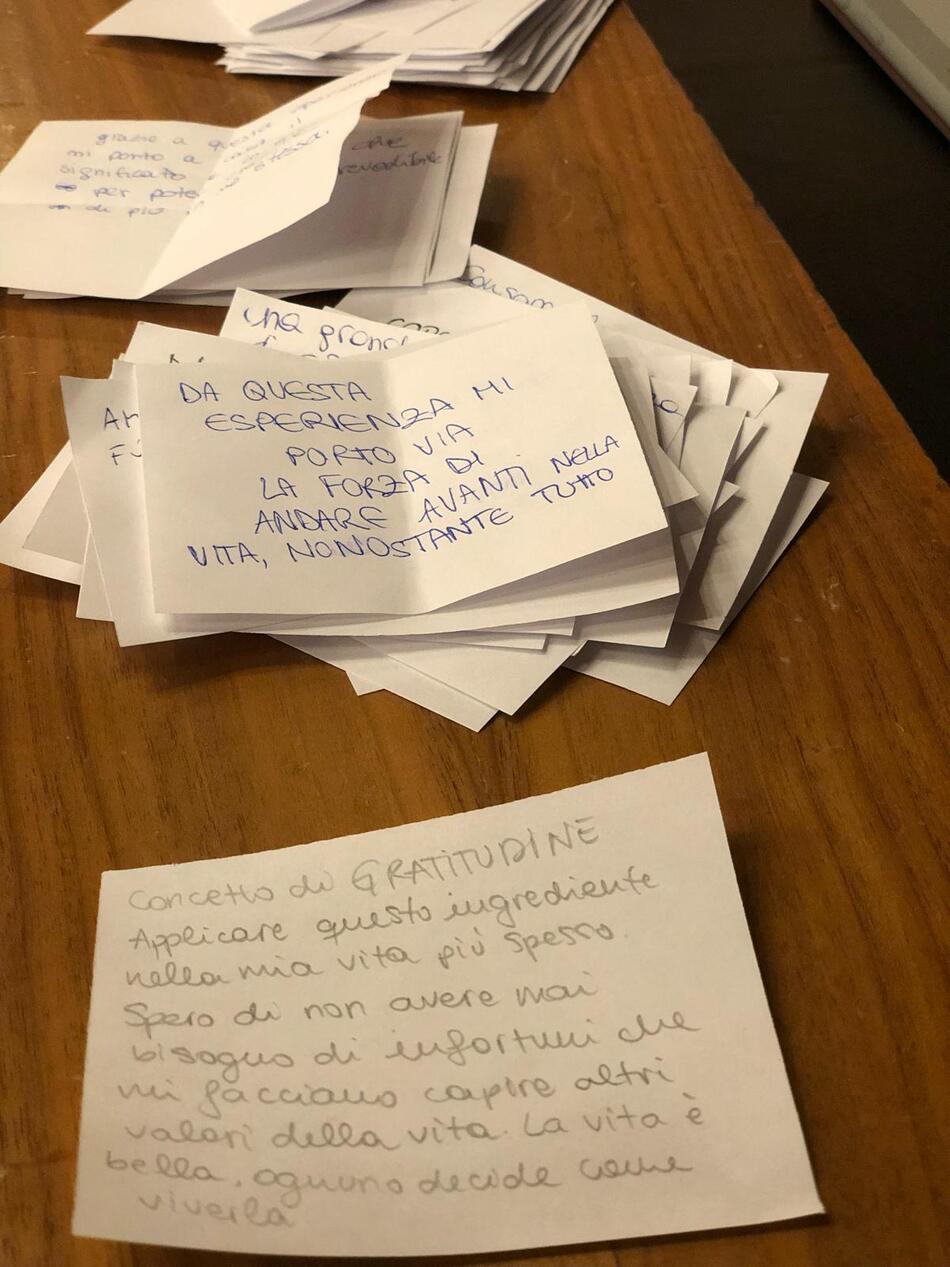 grazie a questa
mi porto a casa il
significato
per pote
di più
stessa.
che
Consam
una grand
DA QUESTA
ESPERIENZA MI
PORTO VIA
LA FORZA DI
ANDARE AVANTI NELLA
VITA, NONOSTANTE TUTTO
Concetto di GRATITUDINE
Applicare questo ingrediente
nella mia vita più spesso.
Spero di non avere mai
bisogno di infortuni che
mi facciano capire altri
valori della vita. La vita è
bella, ognuno decide come
viverla